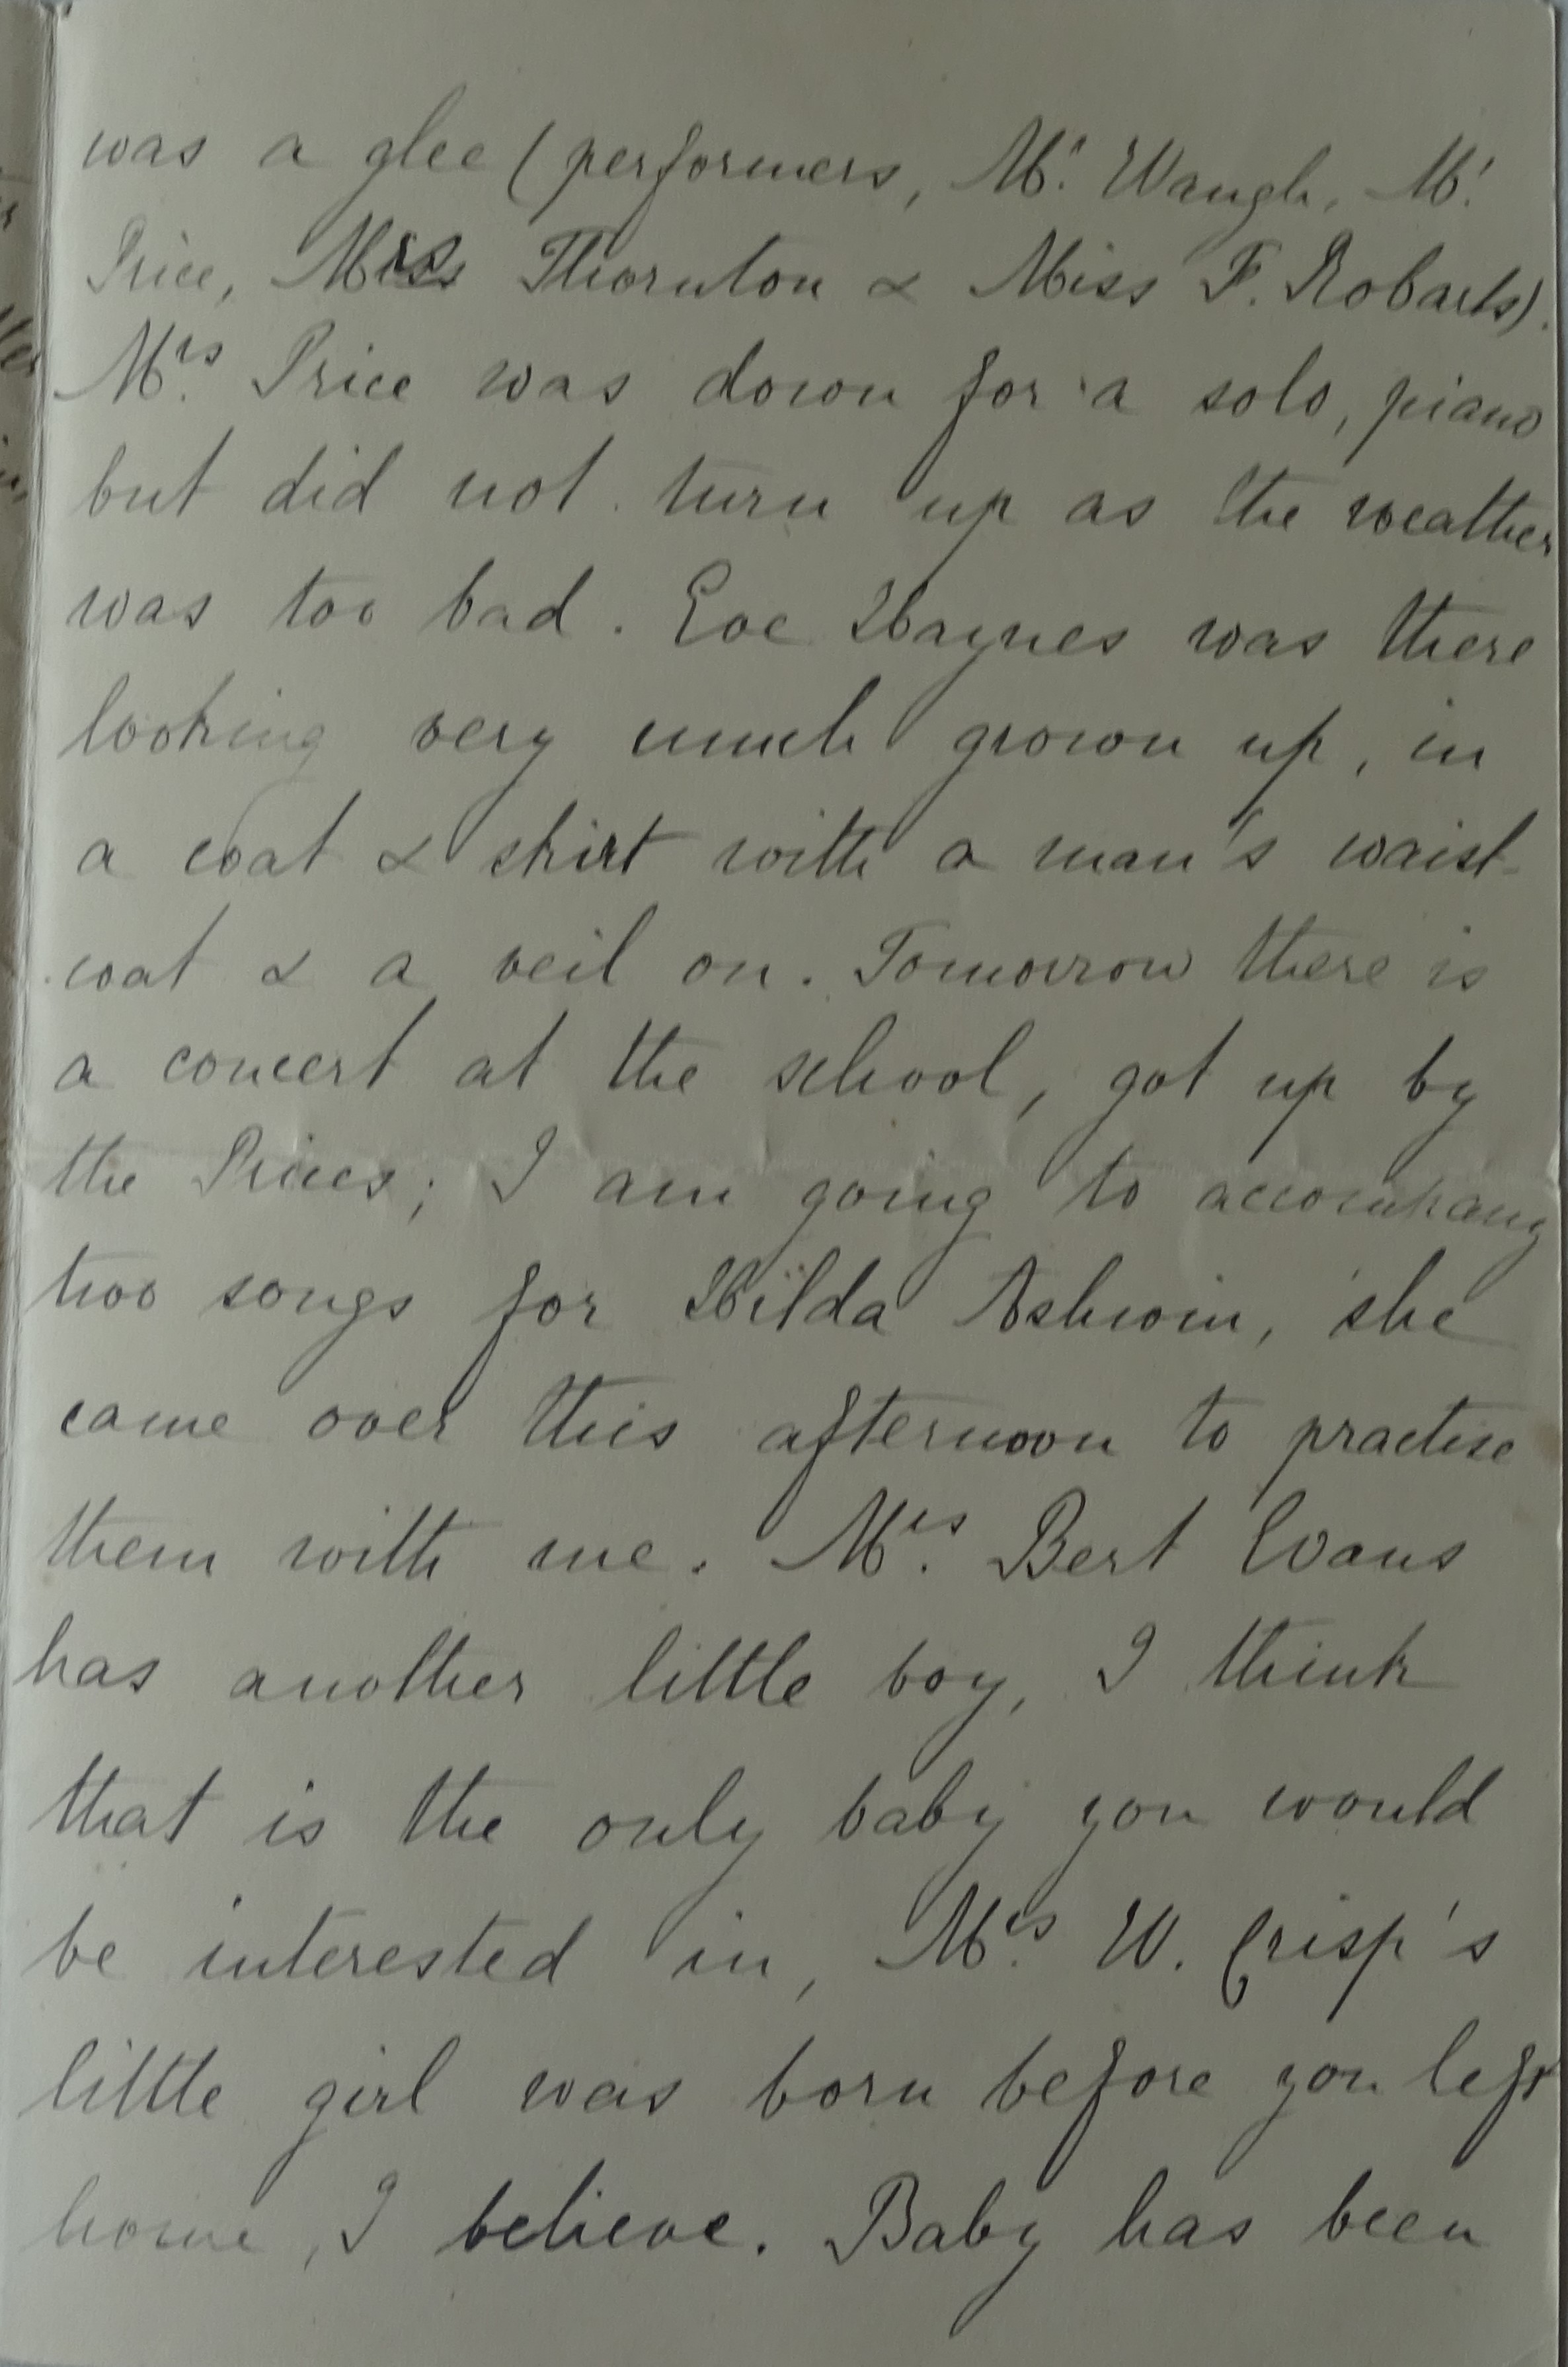 was a glee (performers, Mr. Waugh, Mr.
Price, Mrs Thornton & Miss F. Robarts).
Mrs. Price was down for a solo, piano
but did not turn up as the weather
was too bad. Eve Haynes was there
looking very much grown up, in
a coat & skirt with a man's waist-
coat & a veil on. Tomorrow there is
a concert at the school, got up by
the Prices; I am going to accompany
two songs for Hilda Ashwin, she
came over this afternoon to practise
them with me. Mrs. Bert Evans
has another little boy, I think
that is the only baby you would
be interested in, Mrs. W. Crisp's
little girl was born before you left
home, I believe. Baby has been